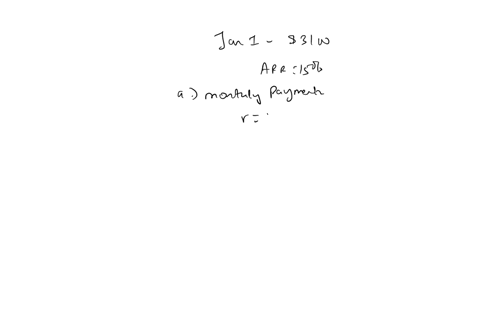 Jan 1 - $3100
APR = 15%
a.) monthly payment
r =